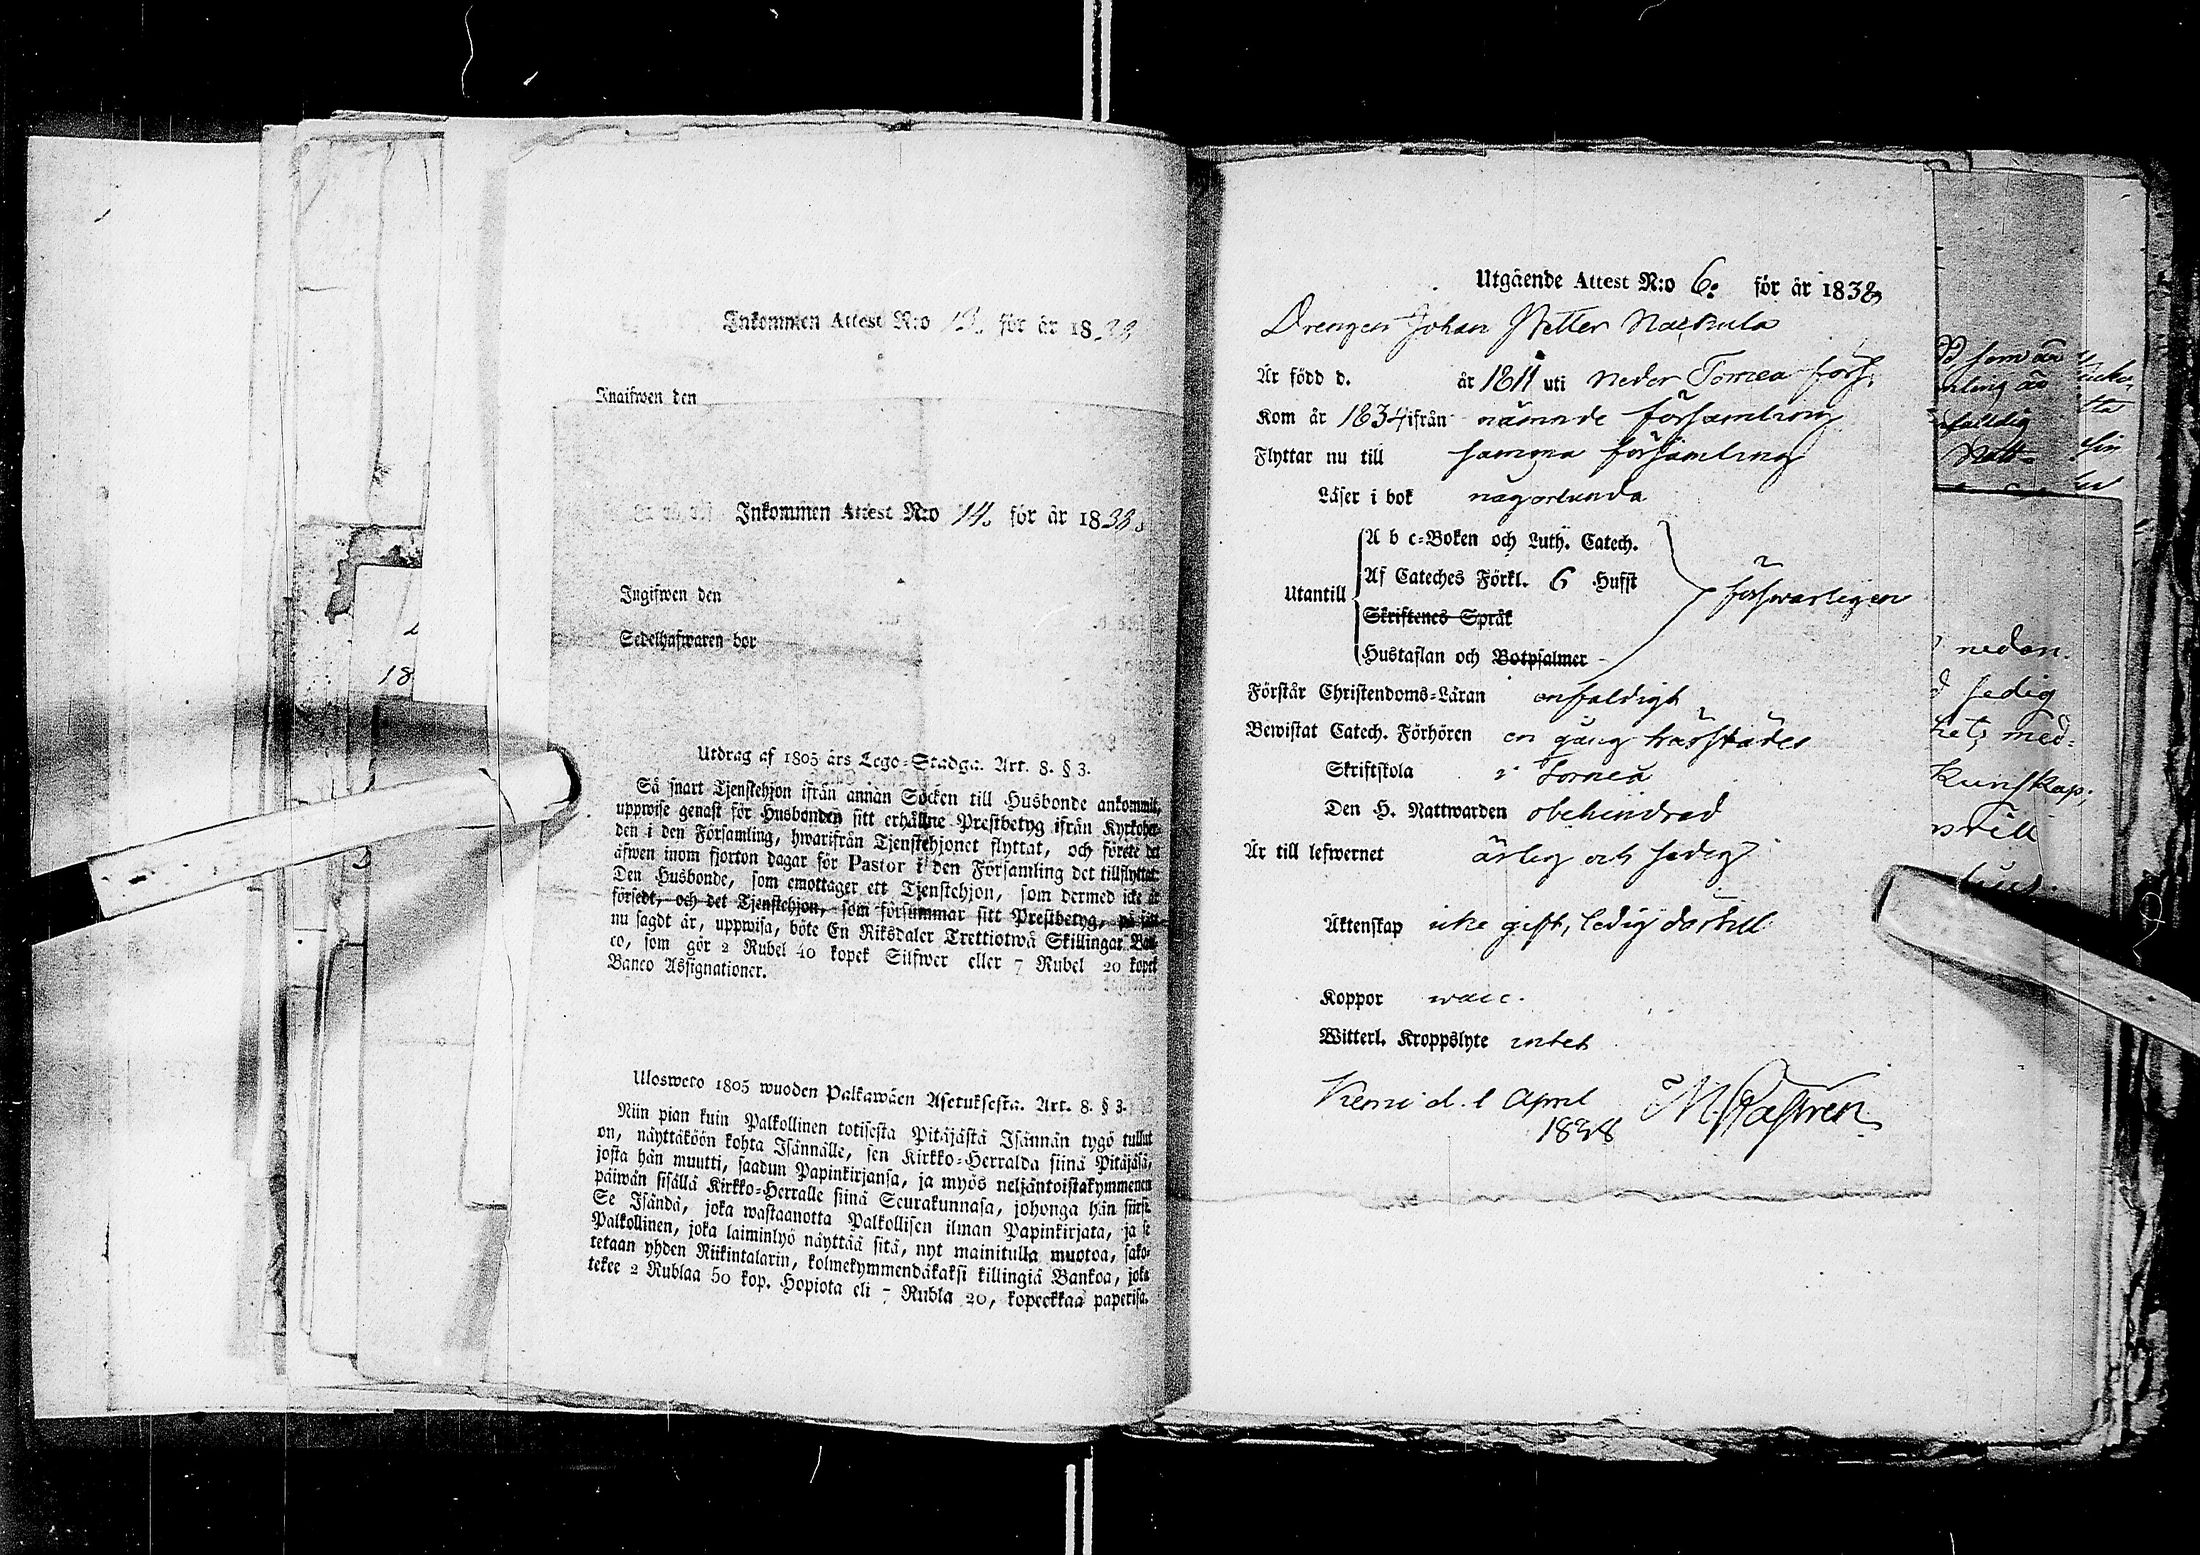 Inkommen Attest N:o 13. för år 1838
Ingifwen den
Inkommen Attest N:o 14. för år 1838.
Ingifwen den
Sedelhafwaren bor
18
Utdrag af 1805 års Lego-Stadga. Art. 8. § 3.
Så snart Tjenstehjon ifrån annan Socken till Husbonde ankommit,
uppwise genast för Husbonden sitt erhållne Prestbetyg ifrån Kyrkoher-
den i den Församling, hwarifrån Tjenstehjonet flyttat, och förete det
äfwen inom fjorton dagar för Pastor i den Församling det tillflyttat.
Den Husbonde, som emottager ett Tjenstehjon, som dermed icke är
försedt, och det Tjenstehjon, som försummar sitt Prestbetyg, på sätt
nu sagdt är, uppwisa, böte En Riksdaler Trettiotwå Skillingar Ban-
co, som gör 2 Rubel 40 kopek Silfwer eller 7 Rubel 20 kopek
Banco Assignationer.
Ulosweto 1805 wuoden Palkawäen Asetuksesta. Art. 8. § 3.
Niin pian kuin Palkollinen totisesta Pitäjästä Isännän tygö tullut
on, näyttäköön kohta Isännälle, sen Kirkko-Herralda siinä Pitäjäsä,
josta hän muutti, saadun Papinkirjansa, ja myös neljäntoistakymmenen
päiwän sisällä Kirkko-Herralle siinä Seurakunnasa, johonga hän siirsi.
Se Isändä, joka wastaanotta Palkollisen ilman Papinkirjata, ja se
Palkollinen, joka laiminlyö näyttää sitä, nyt mainitulla muotoa, sako-
tetaan yhden Riikintalarin, kolmekymmendäkaksi killingiä Bankoa, joka
tekee 2 Rublaa 50 kop. Hopiota eli 7 Rubla 20, kopeekkaa paperisa.
Utgående Attest N:o 6: för år 1838
Drengen Johan Petter Narkula
Är född d. år 1811 uti Neder Torneå förs.
Kom år 1834 ifrån nämnde församling
Flyttar nu till samma församling
Läser i bok någorlunda
A b c-Boken och Luth. Catech.
Af Cateches Förkl. 6 Hufst
Utantill försvarligen
Skriftenes Språk
Hustaflan och Botpsalmer
Förstår Christendoms-Läran enfaldigt
Bewistat Catech. Förhören en gång härstädes
Skriftskola i Torneå
Den H. Nattwarden obehindrad
Är till lefwernet ärlig och sedig
Äktenskap icke gift, ledig dertill
Koppor vacc.
Witterl. Kroppslyte intet
Kemi d. 1 April
1838 M. Castrén
som är
nedan.
sedig
het, med-
Kunskap;